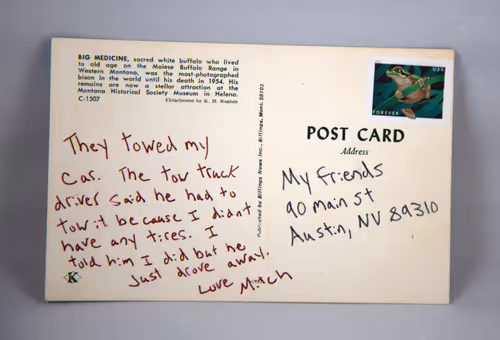 BIG MEDICINE, sacred white buffalo who lived
to old age on the Moiese Buffalo Range in
Western Montana, was the most-photographed
bison in the world until his death in 1954. His
remains are now a stellar attraction at the
Montana Historical Society Museum in Helena.
C-1507
Ektachrome by K. H. Roahen
They towed my
car. The tow truck
driver said he had to
tow it because I didnt
have any tires. I
told him I did but he
Just drove away.
Love Mitch
K
Published by Billings News Inc., Billings, Mont. 59103
USA
FOREVER
POST CARD
Address
My friends
90 Main St
Austin, NV 89310